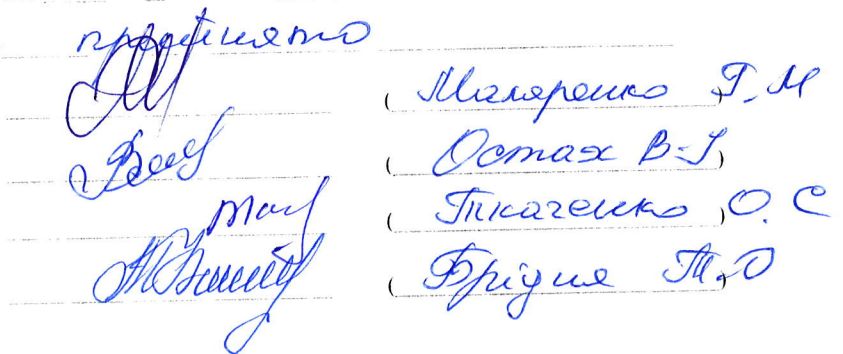 прийнято
( Маляренко Г.М )
( Остах В-І )
( Ткаченко О.С )
( Брідня Т.О )